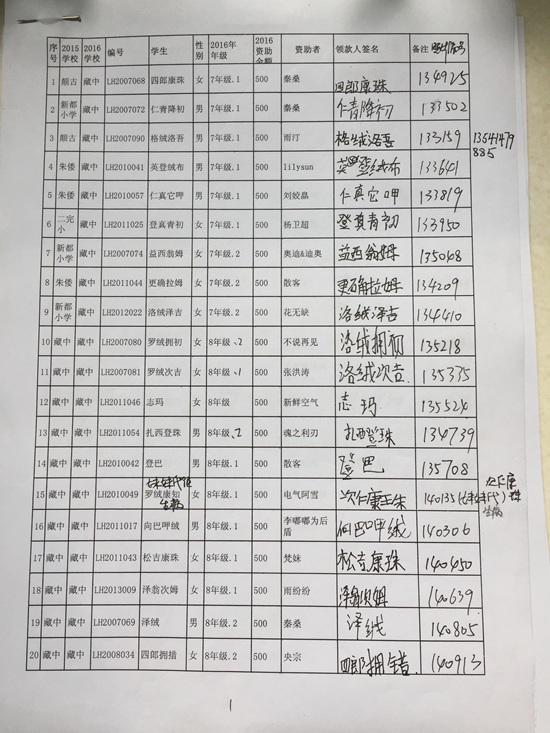 序号 2015学校 2016学校 编号 学生 性别 2016年年级 2016资助金额 资助者 领款人签名 备注
1 颠古 藏中 LH2007068 四郎康珠 女 7年级.1 500 秦桑 四郎康珠 134925
2 新都小学 藏中 LH2007072 仁青降初 男 7年级.1 500 秦桑 仁青降初 133502
3 颠古 藏中 LH2007090 格绒洛吾 男 7年级.1 500 雨汀 格绒洛吾 133159 13541479885
4 朱倭 藏中 LH2010041 英登绒布 男 7年级.1 500 lilysun 英登绒布 133641
5 朱倭 藏中 LH2010057 仁真它呷 男 7年级.1 500 刘姣晶 仁真它呷 133819
6 二完小 藏中 LH2011025 登真青初 女 7年级.1 500 杨卫超 登真青初 133950
7 新都小学 藏中 LH2007074 益西翁姆 女 7年级.2 500 奥迪&迪奥 益西翁姆 135048
8 朱倭 藏中 LH2011044 更确拉姆 女 7年级.2 500 散客 更确拉姆 134209
9 新都小学 藏中 LH2012022 洛绒泽吉 女 7年级.2 500 花无缺 洛绒泽吉 134410
10 藏中 藏中 LH2007080 罗绒拥初 女 8年级.2 500 不说再见 洛绒拥初 135218
11 藏中 藏中 LH2007081 罗绒次吉 女 8年级.1 500 张洪涛 洛绒次吉 135335
12 藏中 藏中 LH2011046 志玛 女 8年级 500 新鲜空气 志玛 135524
13 藏中 藏中 LH2011054 扎西登珠 男 8年级.2 500 魂之利刃 扎西登珠 134739
14 藏中 藏中 LH2010042 登巴 男 8年级.1 500 散客 登巴 135708
15 藏中 藏中 LH2010049 罗绒康知 女 8年级.1 500 电气阿雪 次仁康珠 140135
16 藏中 藏中 LH2011017 向巴呷绒 男 8年级.1 500 李嘟嘟为后盾 向巴呷绒 140306
17 藏中 藏中 LH2011043 松吉康珠 女 8年级.1 500 梵妹 松吉康珠 140450
18 藏中 藏中 LH2013009 泽翁次姆 女 8年级.1 500 雨纷纷 140639
19 藏中 藏中 LH2007069 泽绒 男 8年级.2 500 秦桑 泽绒 140805
20 藏中 藏中 LH2008034 四郎拥措 女 8年级.2 500 央宗 四郎拥错 140913
1